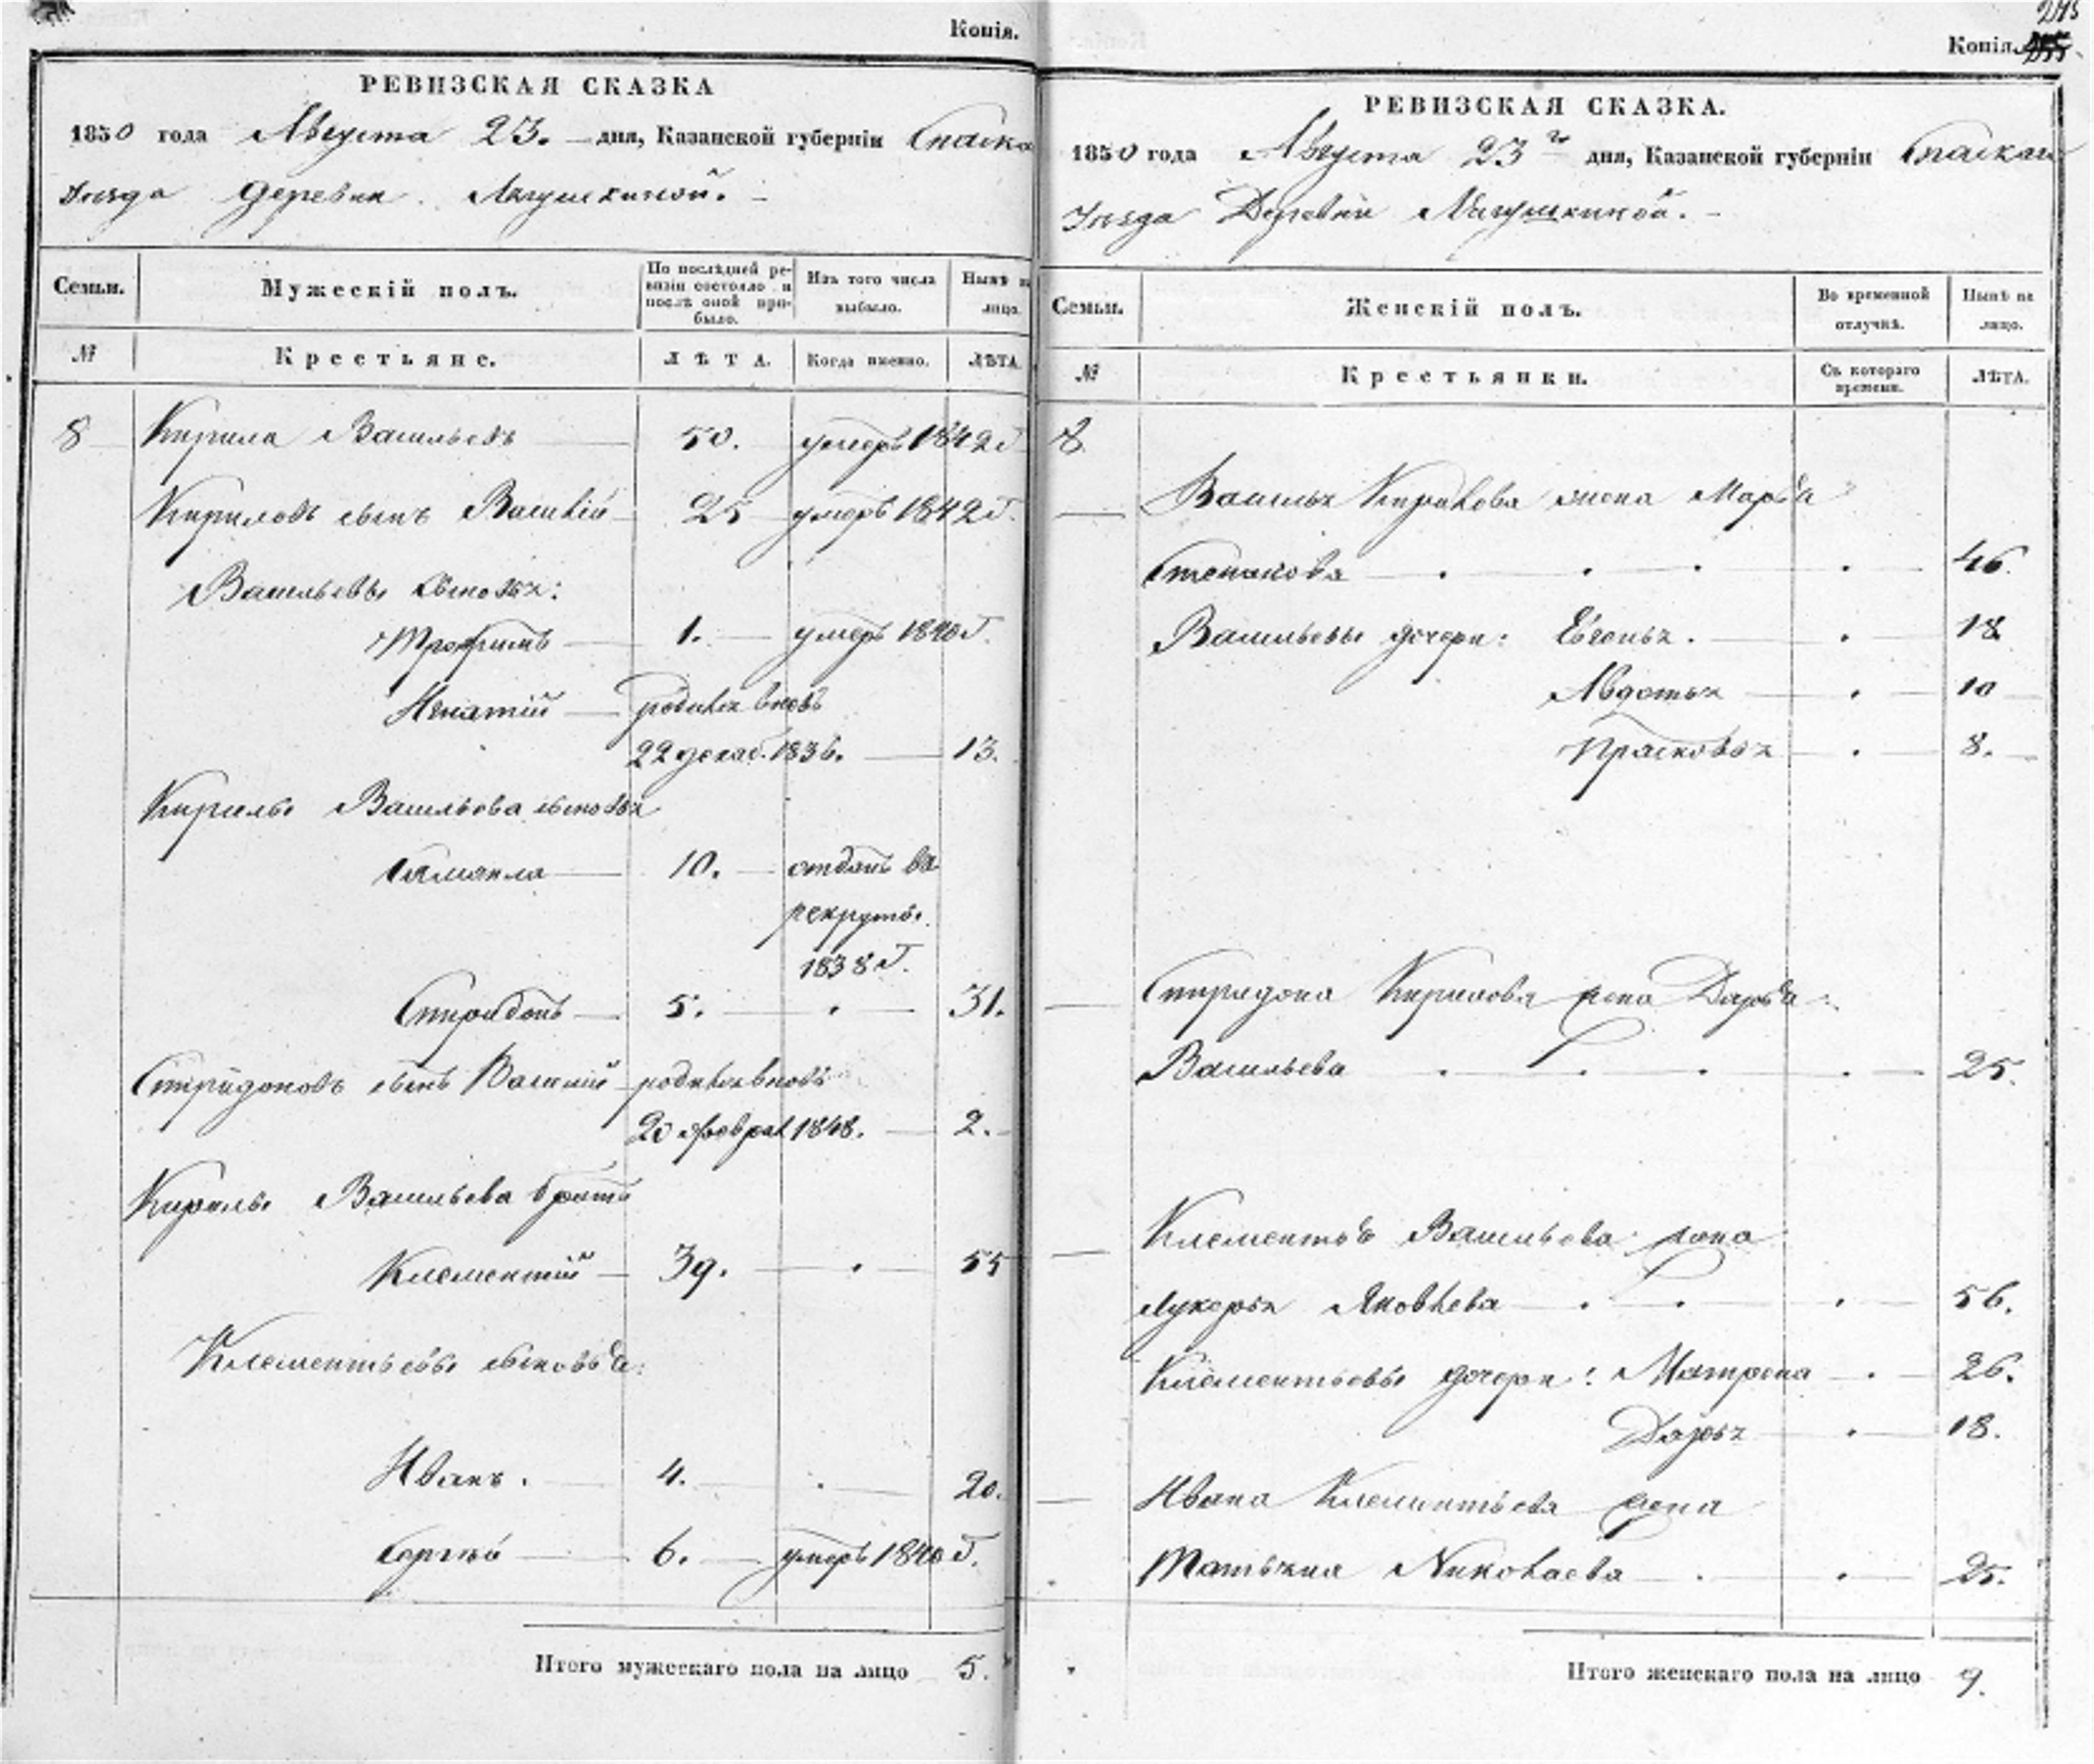 Копія.
РЕВИЗСКАЯ СКАЗКА
1850 года Августа 23. дня, Казанской губерніи Спаска
Уѣзда деревни
Семьи.
Мужескій полъ.
По послѣдней ре-
визіи состояло и
послѣ оной при-
было.
Изъ того числа
выбыло.
Нынѣ н
лицо.
№
Крестьяне.
ЛѢТА.
Когда именно.
ЛѢТА.
8 Кирила Васильевъ 50. умеръ 1842 г
Кириловъ сынъ Василій 25 умеръ 1842 г.
Васильевы сыновья:
Трофимъ 1. умеръ 1840 г.
Игнатій родился вновь
22 декаб. 1836. 13.
Кирилы Васильева сыновья
Самоила 10. отданъ въ
рекруты.
1838 г.
Спиридонъ 5. 31.
Спиридоновъ сынъ Василій родился вновь
20 феврал 1848. 2.
Кирилы Васильева братъ
Клементій 39. 55
Клементьевы сыновья:
Иванъ. 4. 20.
Сергѣй 6. умеръ 1840 г.
Итого мужескаго пола на лицо 5.
245
Копія.
РЕВИЗСКАЯ СКАЗКА.
1850 года Августа 23 го дня, Казанской губерніи Спаскаго
Уѣзда Деревни
Семьи.
Женскій полъ.
Во временной
отлучкѣ.
Нынѣ на
лицо.
№
Крестьянки.
Съ котораго
времени.
ЛѢТА.
8.
Василья Кирилова жена Марья
Степанова 46.
Васильевы дочери: Евгенья. 18.
Авдотья 10
Прасковья 8.
Спиридона Кирилова жена Дарья
Васильева 25.
Клементья Васильева жена
Лукерья Яковлева 56.
Клементьевы дочери: Матрена 26.
Дарья 18.
Ивана Клементьева жена
Татьяна Николаева 25.
Итого женскаго пола на лицо 9.